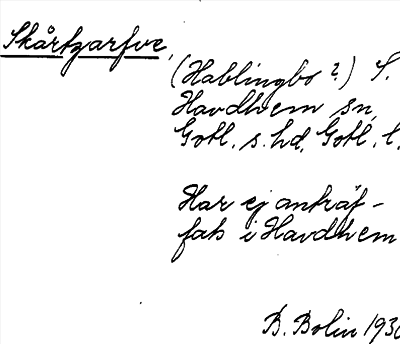 Skårtzarfve,
(Hablingbo?) S.
Havdhem sn,
Gotl. s. hd, Gotl. l.
Har ej anträf-
fats i Havdhem
B. Bolin 1930